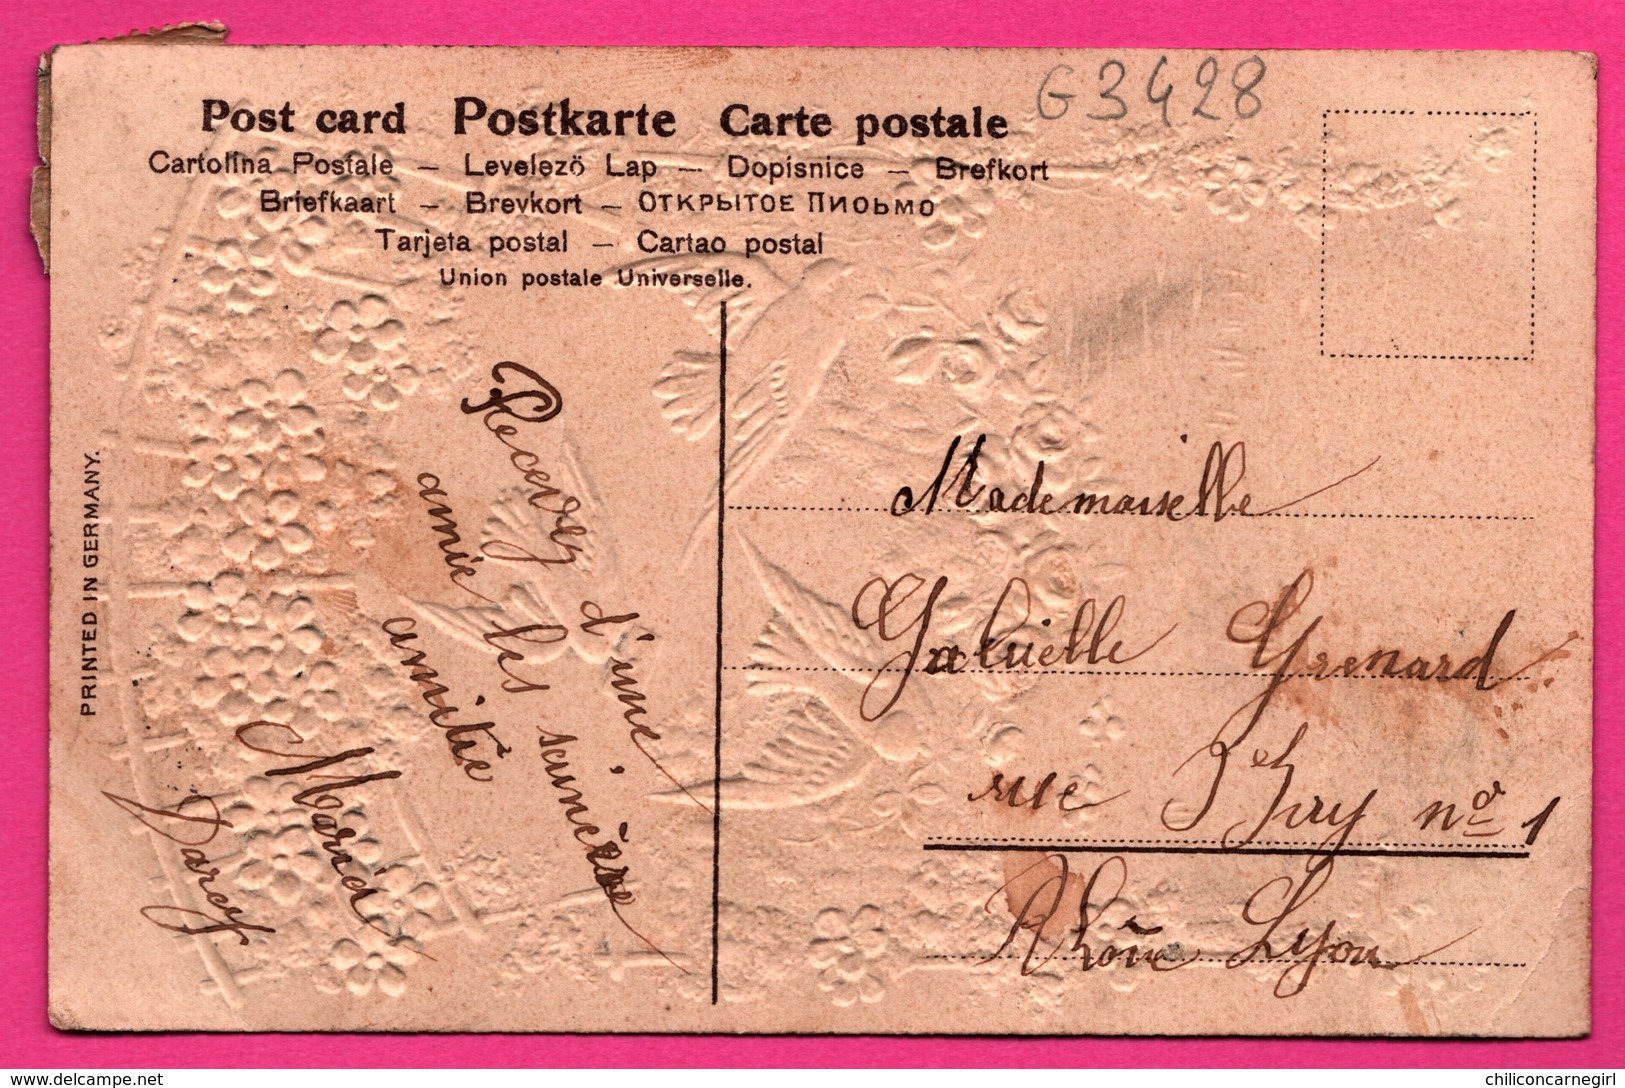 G3428
Post card Postkarte Carte postale
Cartolina Postale — Levelezö Lap — Dopisnice — Brefkort
Briefkaart — Brevkort — ОТКРЫТОЕ ПИСЬМО
Tarjeta postal — Cartao postal
Union postale Universelle.
PRINTED IN GERMANY.
Recevez d'une
amie les
amitié
Maria
Darcy
Mademaiselle
Gabrielle Grenard
rue no 1
Rhône Lyon
delcampe.net
chiliconcarnegirl